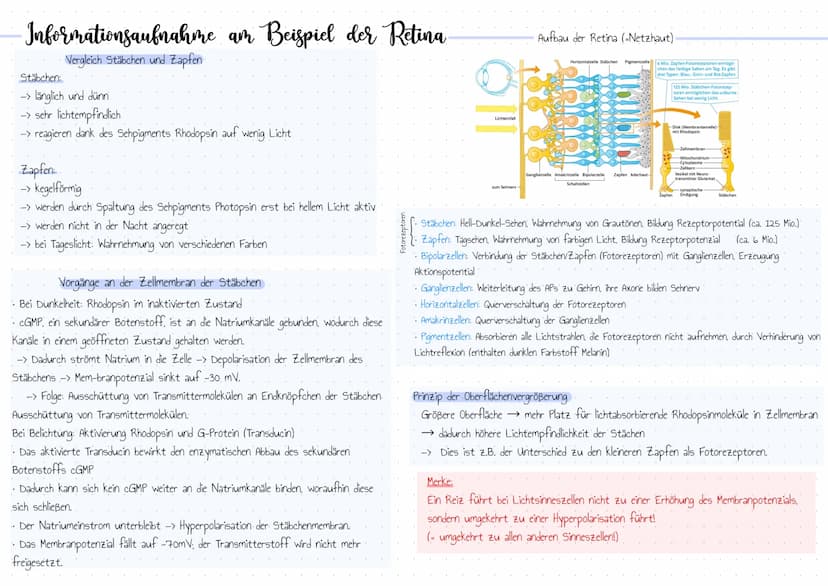 Informationsaufnahme am Beispiel der Retina
Vergleich Stäbchen und Zapfen
Stäbchen:
-> länglich und dünn
-> sehr lichtempfindlich
-> reagieren dank des Sehpigments Rhodopsin auf wenig Licht
Zapfen:
-> kegelförmig
-> werden durch Spaltung des Sehpigments Photopsin erst bei hellem Licht aktiv
-> werden nicht in der Nacht angeregt
-> bei Tageslicht: Wahrnehmung von verschiedenen Farben
Vorgänge an der Zellmembran der Stäbchen
· Bei Dunkelheit: Rhodopsin im inaktivierten Zustand
· cGMP, ein sekundärer Botenstoff, ist an die Natriumkanäle gebunden, wodurch diese
Kanäle in einem geöffneten Zustand gehalten werden.
-> Dadurch strömt Natrium in die Zelle -> Depolarisation der Zellmembran des
Stäbchens -> Mem-branpotenzial sinkt auf -30 mV.
-> Folge: Ausschüttung von Transmittermolekülen an Endknöpfchen der Stäbchen
Ausschüttung von Transmittermolekülen.
Bei Belichtung: Aktivierung Rhodopsin und G-Protein (Transducin)
· Das aktivierte Transducin bewirkt den enzymatischen Abbau des sekundären
Botenstoffs cGMP
· Dadurch kann sich kein cGMP weiter an die Natriumkanäle binden, woraufhin diese
sich schließen.
· Der Natriumeinstrom unterbleibt -> Hyperpolarisation der Stäbchenmembran.
· Das Membranpotenzial fällt auf -70mV; der Transmitterstoff wird nicht mehr
freigesetzt.
Aufbau der Retina (=Netzhaut)
Horizontalzelle Stäbchen Pigmentzelle
6 Mio. Zapfen-Fotorezeptoren ermöglichen
das farbige Sehen am Tag. Es gibt
drei Typen: Blau-, Grün- und Rot-Zapfen
125 Mio. Stäbchen-Fotorezeptoren
ermöglichen das unbunte
Sehen bei wenig Licht
Lichteinfall
Disk (Membranstapel)
mit Rhodopsin
Zellmembran
Mitochondrium
Cytoplasma
Zellkern
Vesikel mit Neurotransmitter
Glutamat
synaptische
Endigung
Zapfen
Stäbchen
zum Sehnerv
Ganglienzelle Amakrinzelle Bipolarzelle Zapfen Aderhaut
Schaltzellen
Fotorezeptoren
· Stäbchen: Hell-Dunkel-Sehen, Wahrnehmung von Grautönen, Bildung Rezeptorpotential (ca. 125 Mio.)
· Zapfen: Tagsehen, Wahrnehmung von farbigen Licht, Bildung Rezeptorpotenzial (ca. 6 Mio.)
· Bipolarzellen: Verbindung der Stäbchen/Zapfen (Fotorezeptoren) mit Ganglienzellen, Erzeugung
Aktionspotential
· Ganglienzellen: Weiterleitung des APs zu Gehirn, ihre Axone bilden Sehnerv
· Horizontalzellen: Querverschaltung der Fotorezeptoren
· Amakrinzellen: Querverschaltung der Ganglienzellen
· Pigmentzellen: Absorbieren alle Lichtstrahlen, die Fotorezeptoren nicht aufnehmen, durch Verhinderung von
Lichtreflexion (enthalten dunklen Farbstoff Melanin)
Prinzip der Oberflächenvergrößerung
Größere Oberfläche → mehr Platz für lichtabsorbierende Rhodopsinmoleküle in Zellmembran
→ dadurch höhere Lichtempfindlichkeit der Stächen
-> Dies ist z.B. der Unterschied zu den kleineren Zapfen als Fotorezeptoren.
Merke:
Ein Reiz führt bei Lichtsinneszellen nicht zu einer Erhöhung des Membranpotenzials,
sondern umgekehrt zu einer Hyperpolarisation führt!
(= umgekehrt zu allen anderen Sinneszellen!)